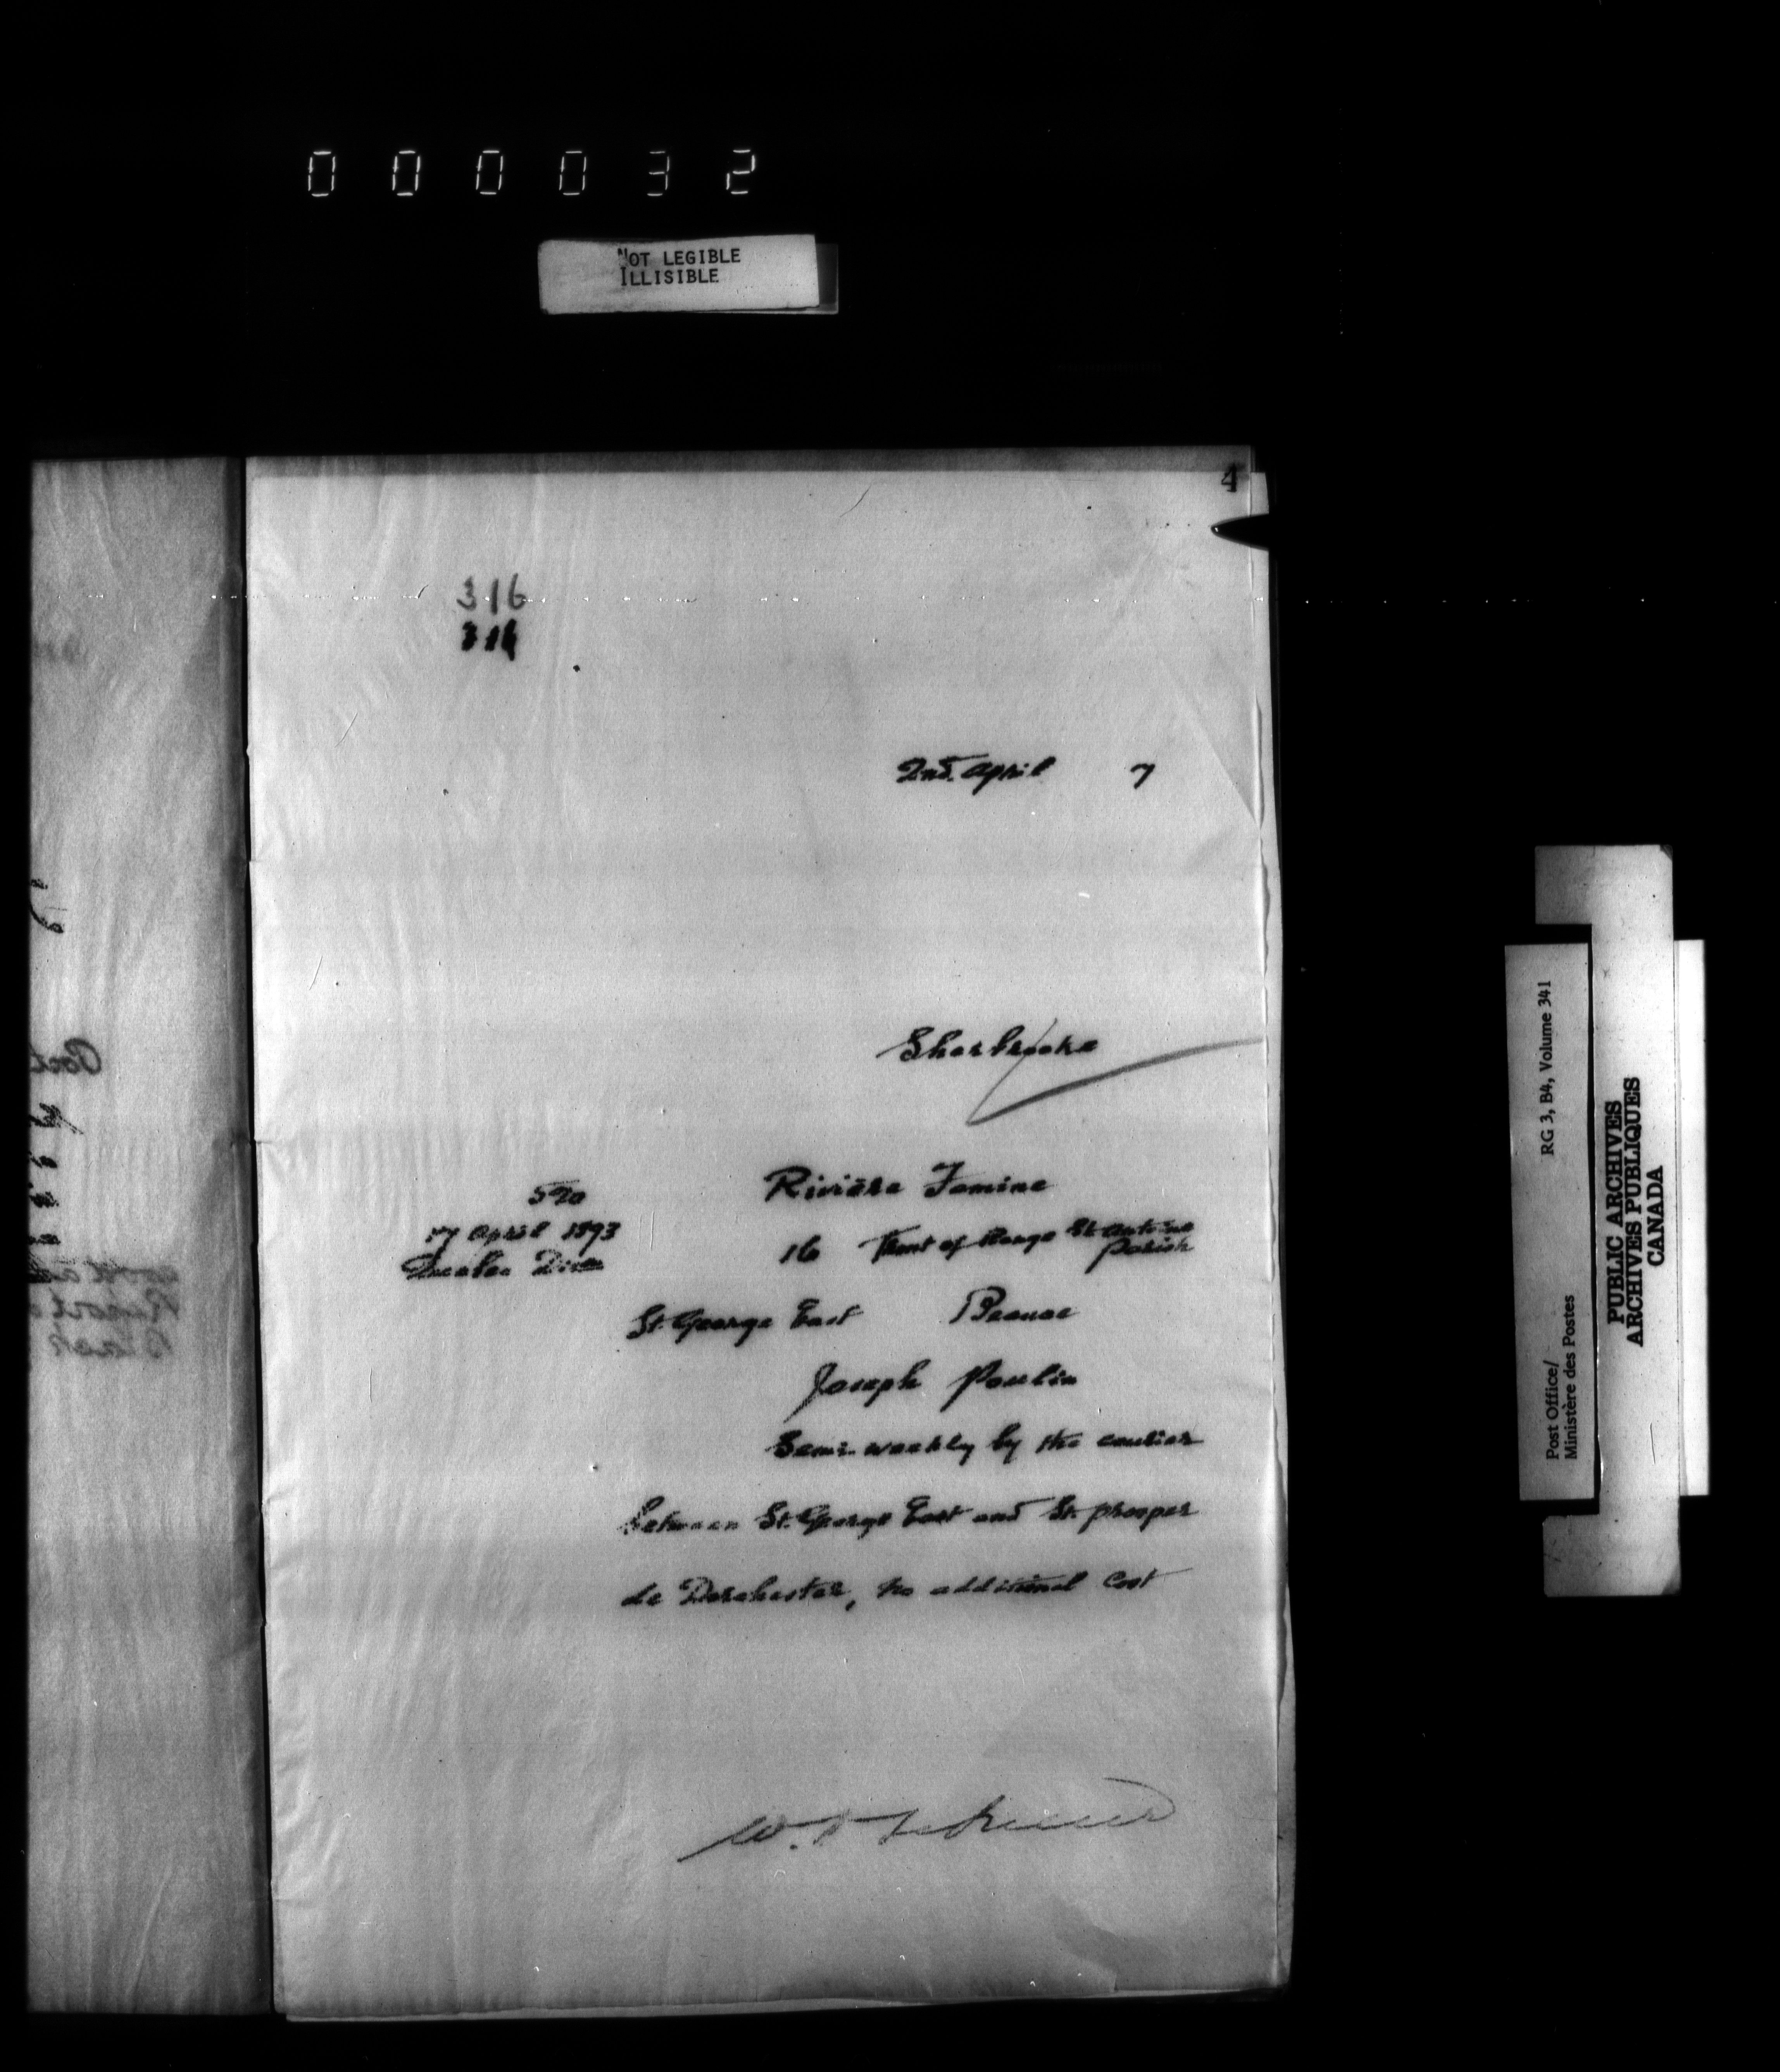 000032
NOT LEGIBLE
ILLISIBLE
4
316
316
2nd. April 7
Sherbrooke
520
17 April 1893
Quebec Divn
Rivière Famine
16 Front of Range St. Antoine
Parish
St. George East Beauce
Joseph Poulin
Semi-weekly by the courier
between St. George East and St. Prosper
de Dorchester, no additional cost
W.
Post Office/
Ministère des Postes
RG 3, B4, Volume 341
PUBLIC ARCHIVES
ARCHIVES PUBLIQUES
CANADA